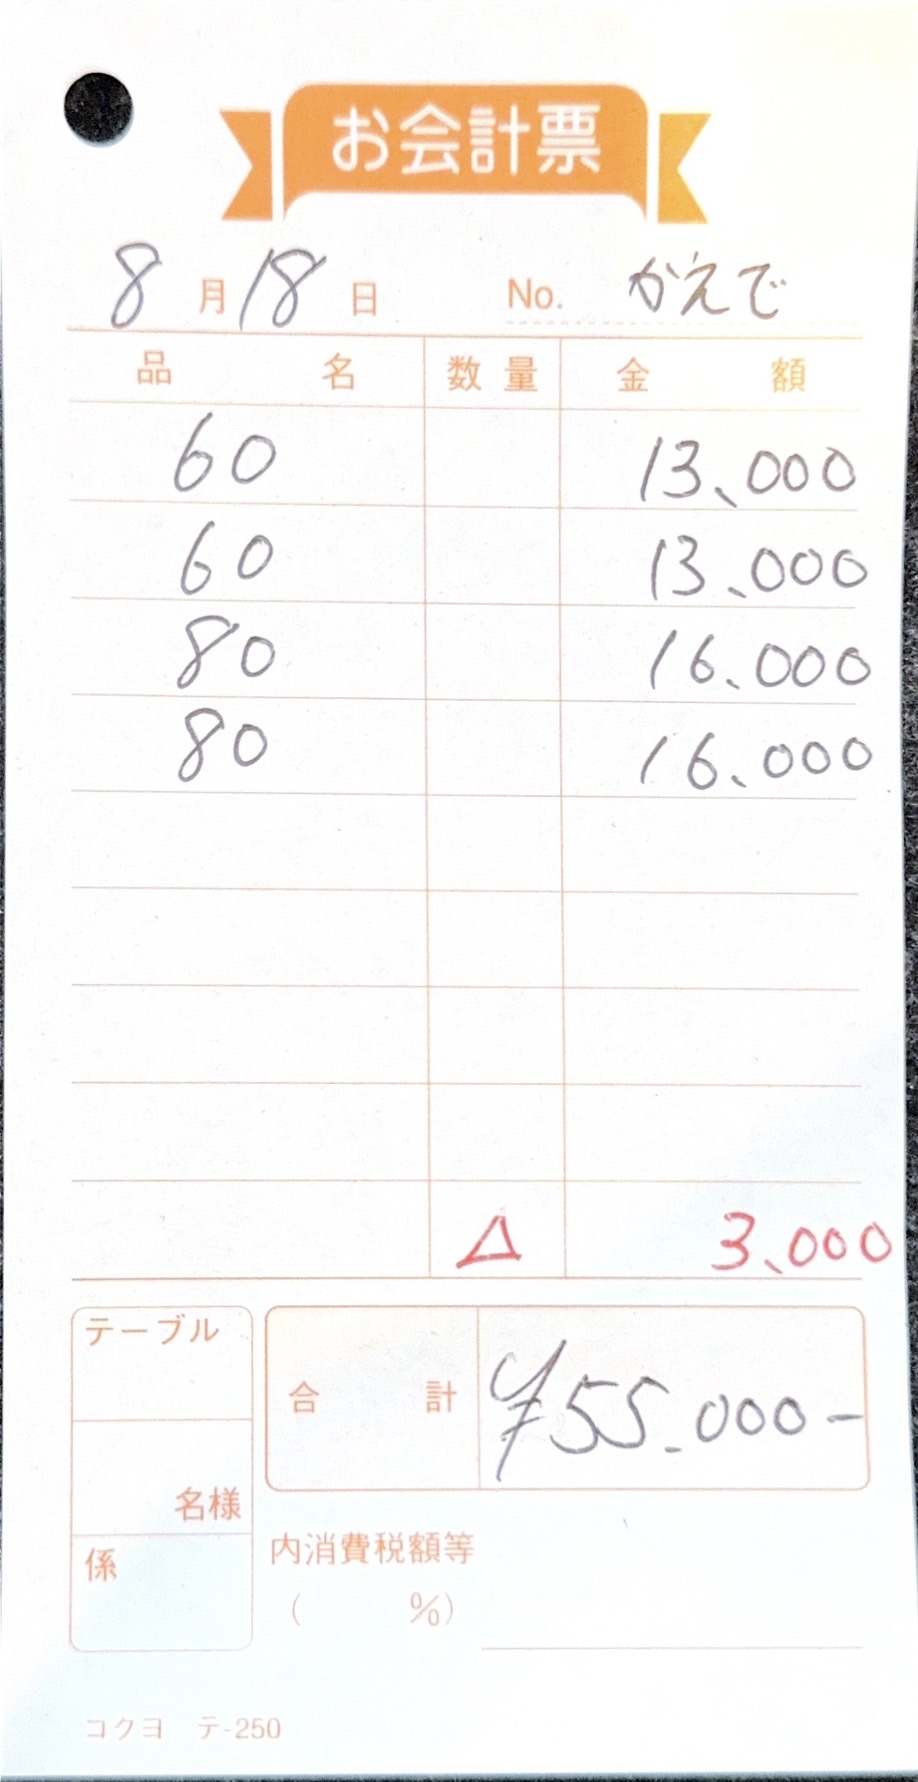 お会計票
8月18日 No. かえで
品名 数量 金額
60 13、000
60 13、000
80 16、000
80 16、000
△ 3、000
テーブル
合計 ¥55.000-
名様
係
内消費税額等
( %)
コクヨ テ-250